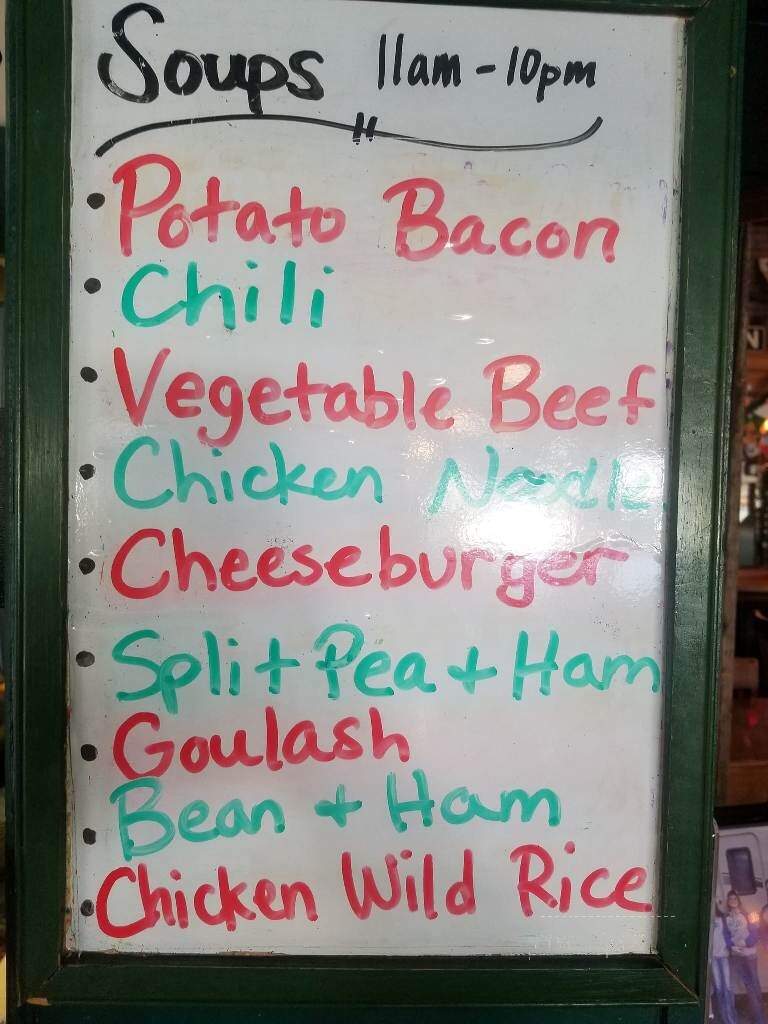 Soups 11am - 10pm
• Potato Bacon
• Chili
• Vegetable Beef
• Chicken Noodle
• Cheeseburger
• Split Pea + Ham
• Goulash
• Bean + Ham
• Chicken Wild Rice